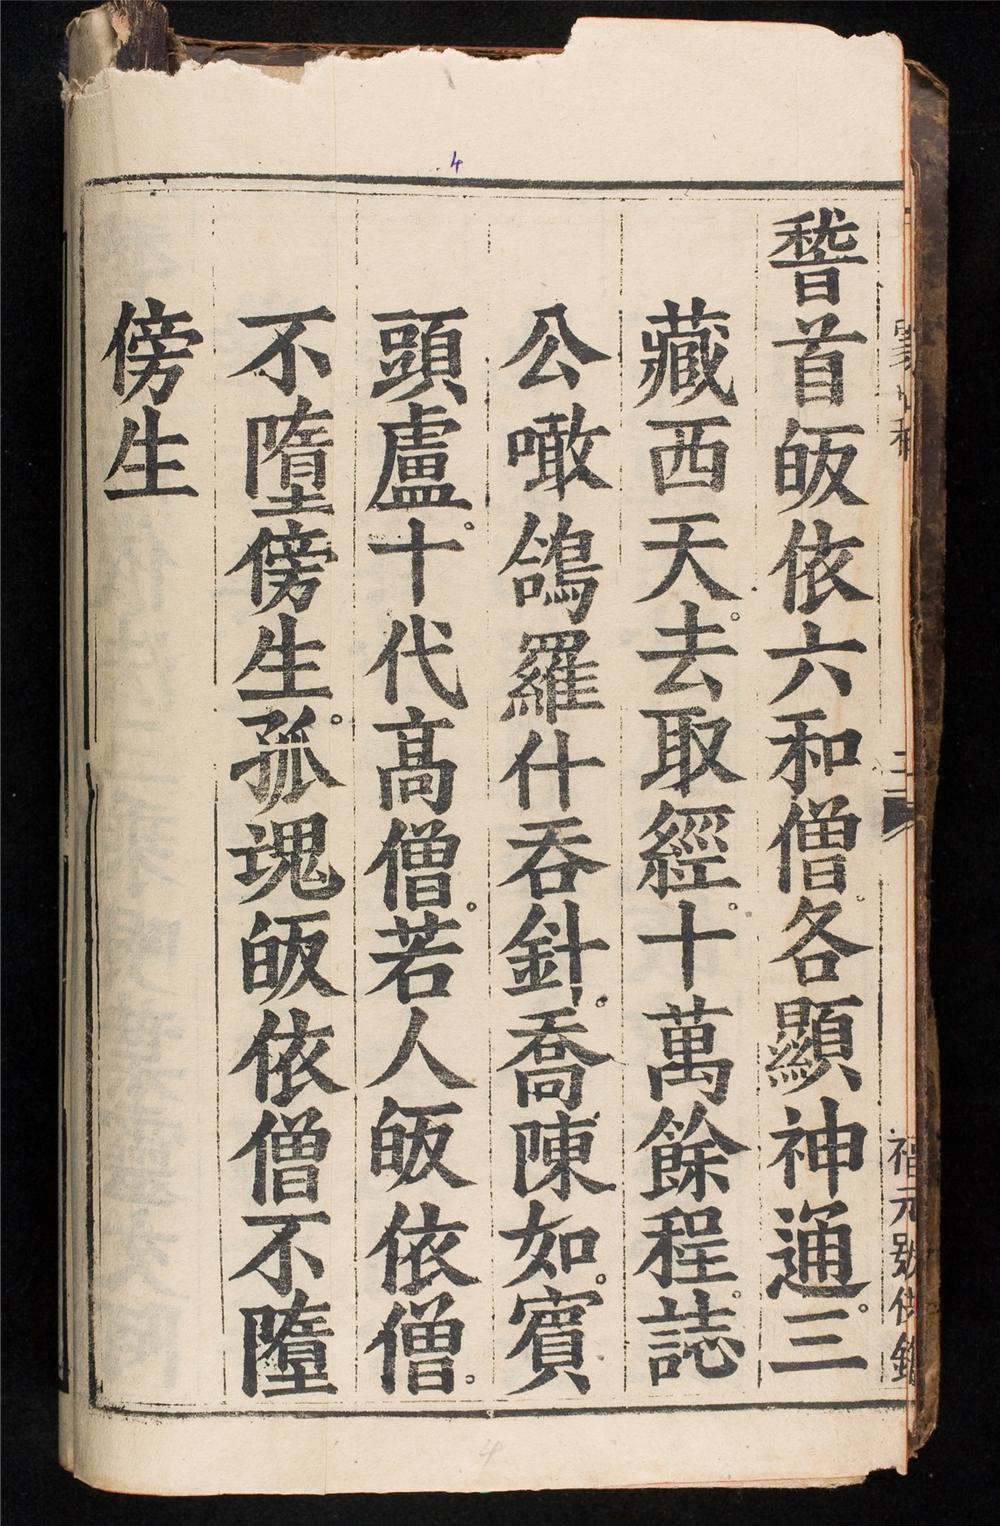 稽首皈依六和僧。各顯神通。三
藏西天。去取經。十萬餘程。誌
公噉鴿羅什吞針。喬陳如。賓
頭盧。十代高僧。若人皈依僧。
不墮傍生。孤魂皈依僧不墮
傍生
4